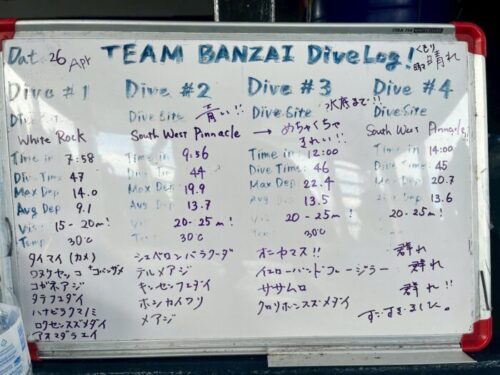 Dat. 26 Apr TEAM BANZAI DiveLog! くもり 時々 晴れ
Dive #1
White Rock
Time in 7:58
Div Time 47
Max Dep 14.0
Avg Dep 9.1
Vis 15-20m!
Temp 30℃
タイマイ(カメ)
コガネアジ
タテフエダイ
ハナビラクマノミ
ロクセンスズメダイ
アオマダラエイ
Dive #2
Dive Site 青い!!
South West Pinnacle
Time in 9:56
Div Time 44
Max Dep 19.9
Avg Dep 13.7
Vis 20-25m!
Temp 30℃
シェベロンバラクーダ
テルメアジ
キンセンフエダイ
ホシカイワリ
メアジ
Dive #3 水底まで!!
Dive Site
→ めちゃくちゃ
きれい!!
Time in 12:00
Dive Time 46
Max Dep 22.4
Avg Dep 13.5
20-25m!
30℃
オニカマス!!
イエローバンドフュージラー
ササムロ
クロリボンスズメダイ
Dive #4
Dive Site
South West Pinnacle
14:00
Dive Time 45
Max Dep 20.7
Avg Dep 13.6
20-25m!
群れ
群れ
群れ!!
すごすぎました。